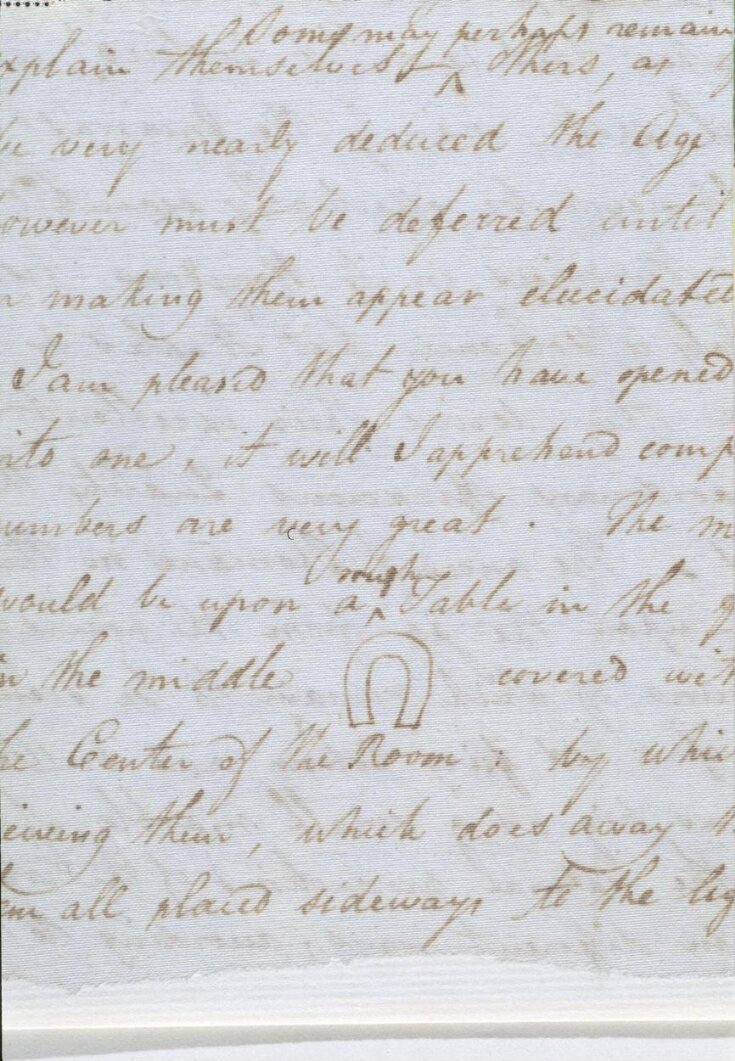 Some may perhaps remain
xplain themselves & others, as
be very nearly deduced the Age
owever must be deferred until
n making them appear elucidated
I am pleased that you have opened
nto one, it will I apprehend comp
umbers are very great . The m
rough
would be upon a ‸ Table in the g
in the middle covered wit
he Center of the Room : by whic
eiving them, which does away th
em all placed sideways to the lig